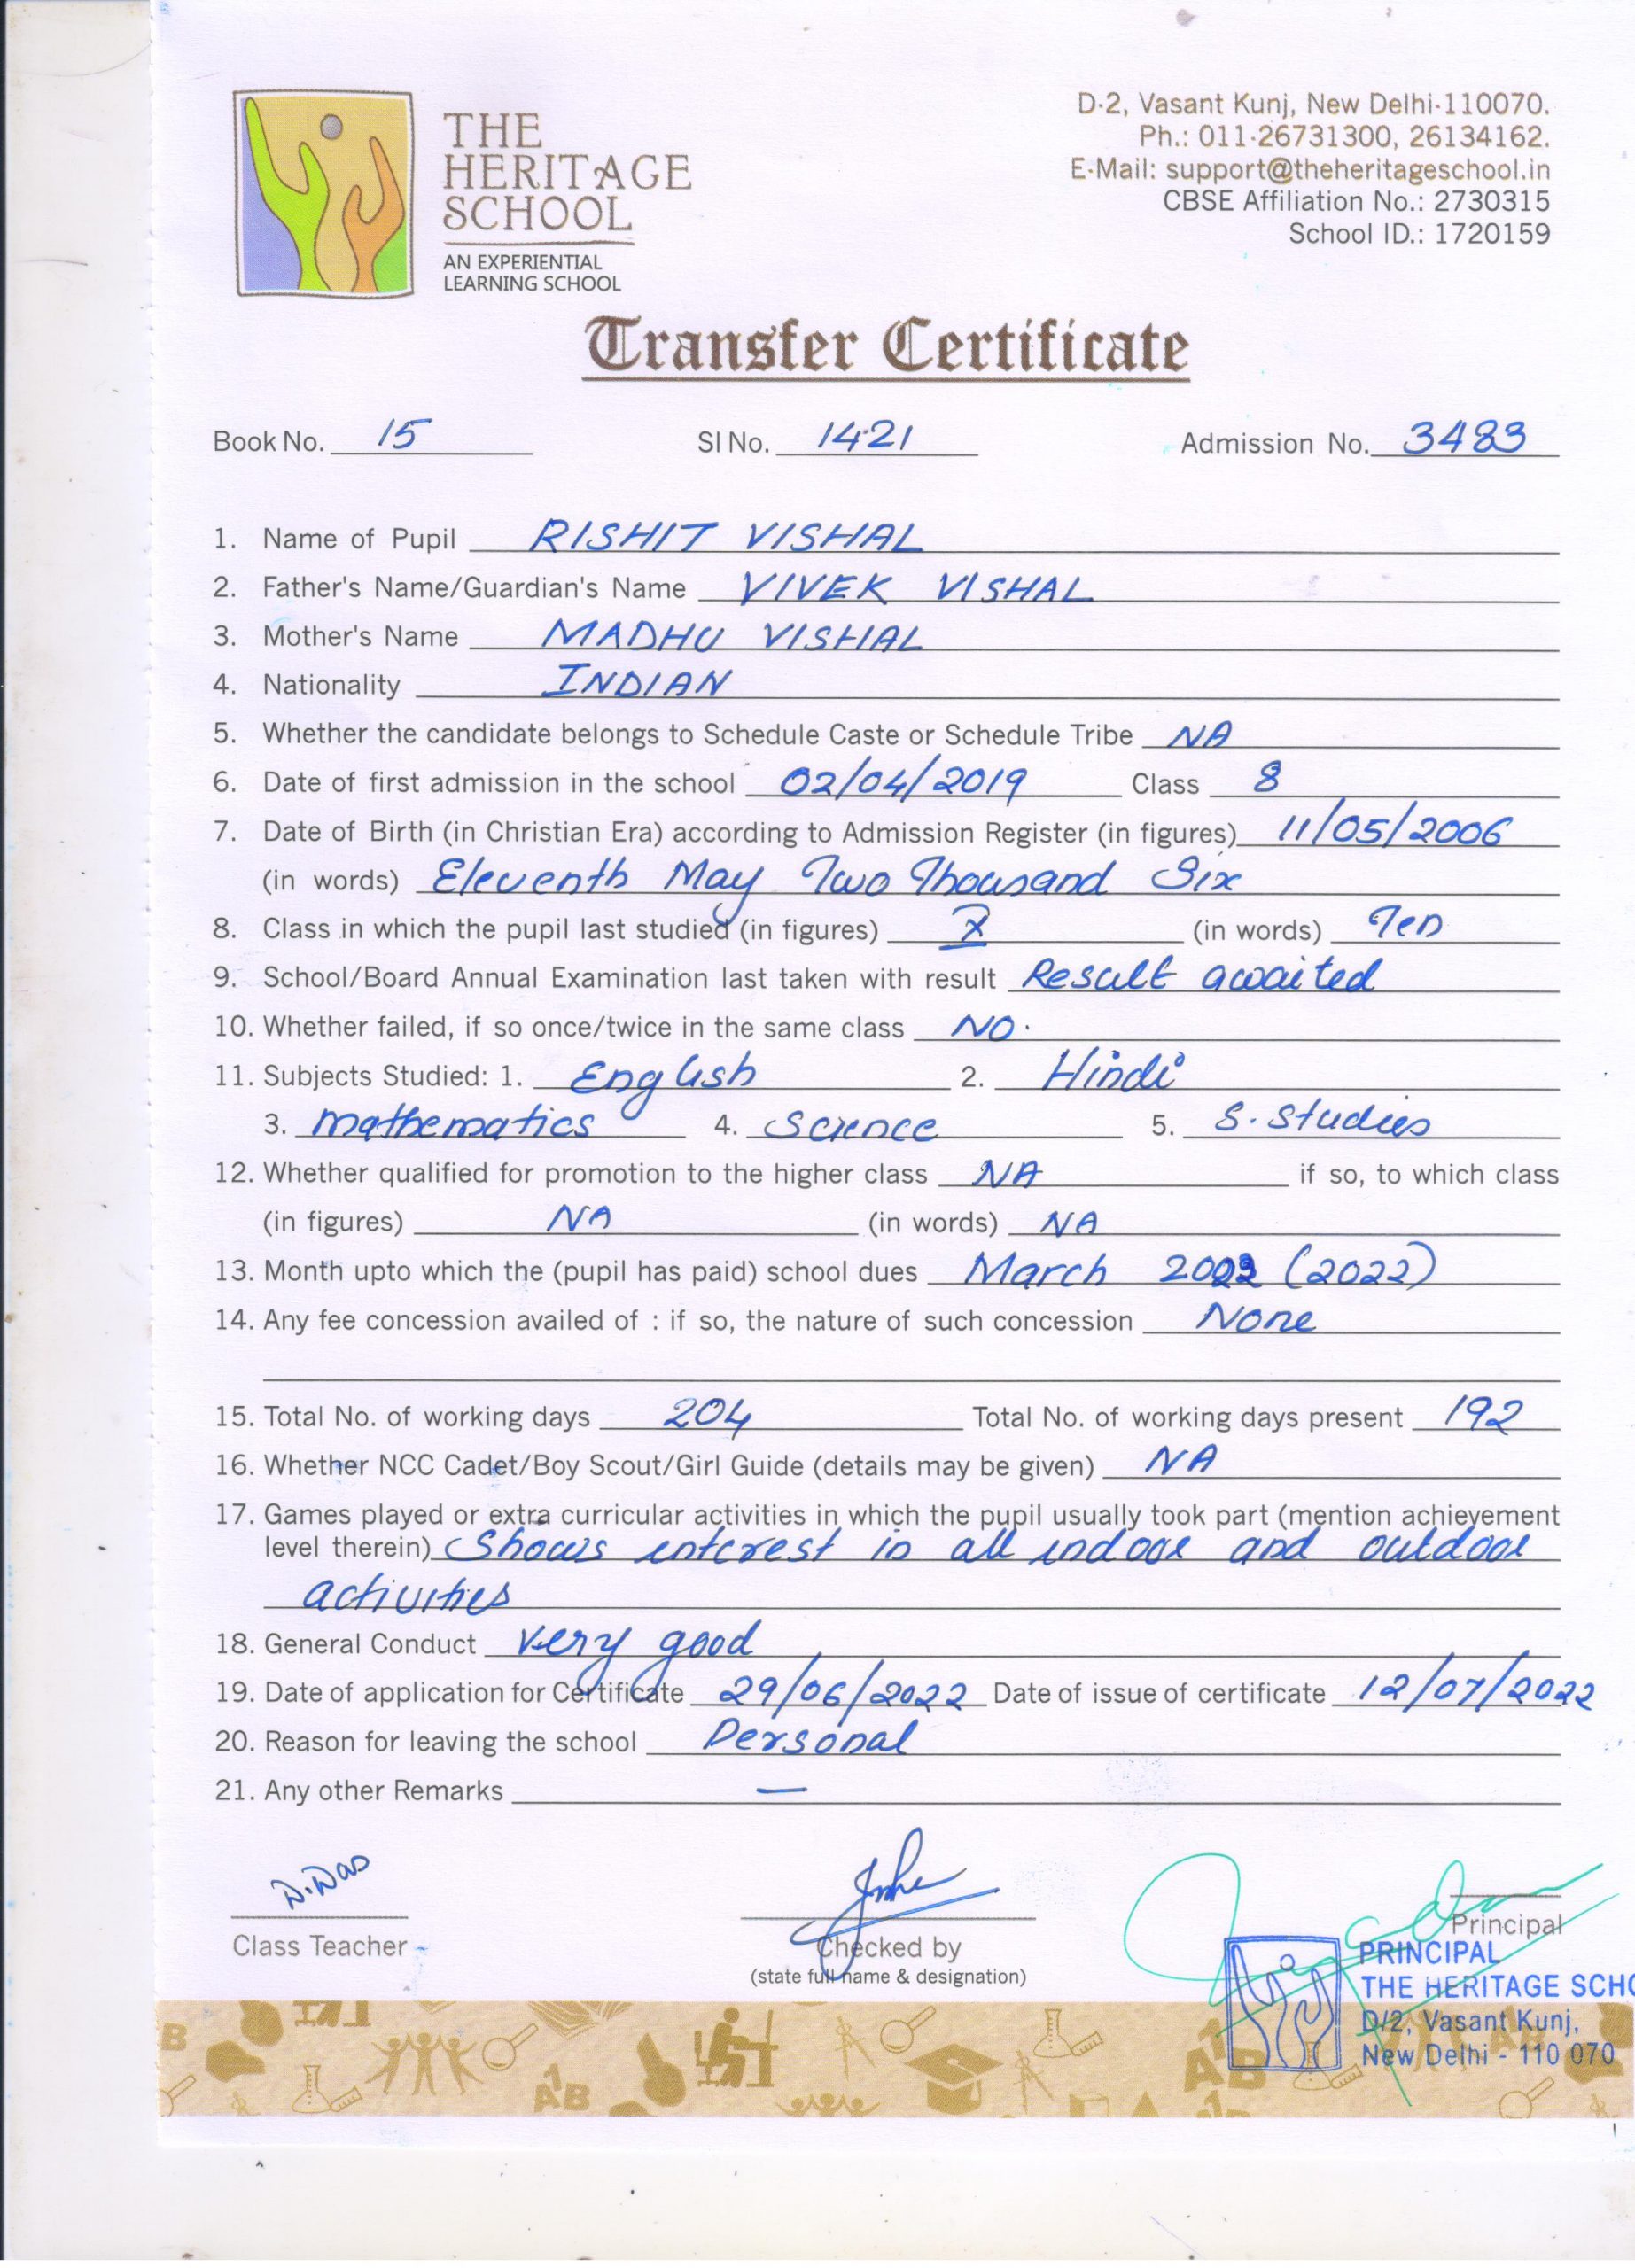 THE
HERITAGE
SCHOOL
AN EXPERIENTIAL
LEARNING SCHOOL
D-2, Vasant Kunj, New Delhi-110070.
Ph.: 011-26731300, 26134162.
E-Mail: support@theheritageschool.in
CBSE Affiliation No.: 2730315
School ID.: 1720159
Transfer Certificate
Book No. 15 Sl No. 1421 Admission No. 3483
1. Name of Pupil RISHIT VISHAL
2. Father's Name/Guardian's Name VIVEK VISHAL
3. Mother's Name MADHU VISHAL
4. Nationality INDIAN
5. Whether the candidate belongs to Schedule Caste or Schedule Tribe NA
6. Date of first admission in the school 02/04/2019 Class 8
7. Date of Birth (in Christian Era) according to Admission Register (in figures) 11/05/2006
(in words) Eleventh May Two Thousand Six
8. Class in which the pupil last studied (in figures) X (in words) Ten
9. School/Board Annual Examination last taken with result Result awaited
10. Whether failed, if so once/twice in the same class NO.
11. Subjects Studied: 1. English 2. Hindi
3. Mathematics 4. Science 5. S. Studies
12. Whether qualified for promotion to the higher class NA if so, to which class
(in figures) NA (in words) NA
13. Month upto which the (pupil has paid) school dues March 2022 (2022)
14. Any fee concession availed of : if so, the nature of such concession None
15. Total No. of working days 204 Total No. of working days present 192
16. Whether NCC Cadet/Boy Scout/Girl Guide (details may be given) NA
17. Games played or extra curricular activities in which the pupil usually took part (mention achievement
level therein) Shows interest in all indoor and outdoor
activities
18. General Conduct Very good
19. Date of application for Certificate 29/06/2022 Date of issue of certificate 12/07/2022
20. Reason for leaving the school Personal
21. Any other Remarks —
D. Das
Class Teacher
Checked by
(state full name & designation)
Principal
PRINCIPAL
THE HERITAGE SCHO
D/2, Vasant Kunj,
New Delhi - 110 070